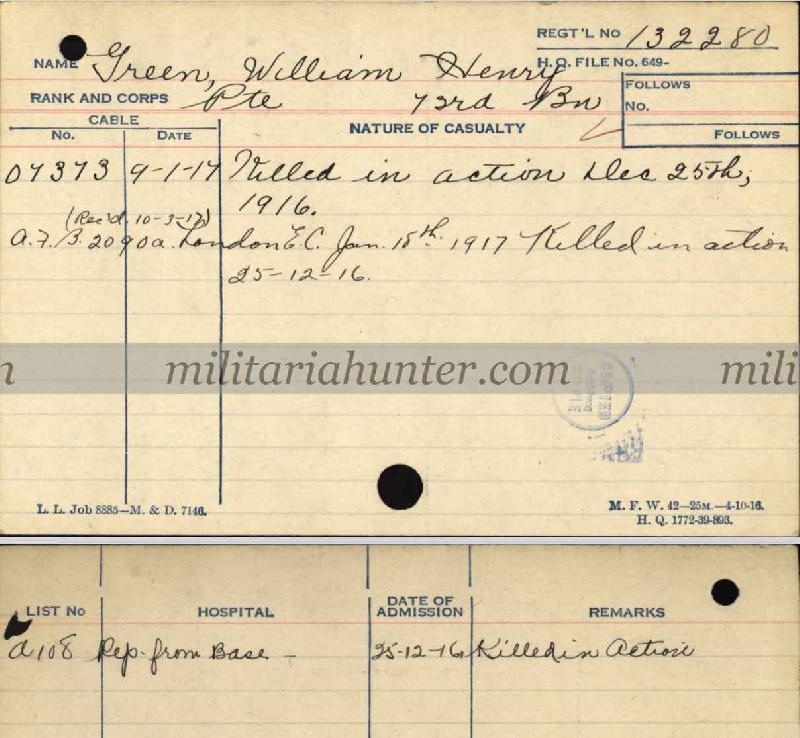 REGT'L NO 132280
NAME Green, William Henry
H.Q. FILE NO. 649-
RANK AND CORPS Pte 73rd Bn
FOLLOWS
NO.
FOLLOWS
CABLE
NO. DATE
NATURE OF CASUALTY
07373 9-1-17 Killed in action Dec 25th,
1916.
(Rec'd. 10-3-17)
A.F.B. 2090a. London E.C. Jan. 18th. 1917 Killed in action
25-12-16.
militariahunter.com
L. L. Job 8885—M. & D. 7146.
M. F. W. 42—25M.—4-10-16.
H. Q. 1772-39-893.
LIST NO HOSPITAL DATE OF ADMISSION REMARKS
A108 Rep. from Base - 25-12-16 Killed in Action